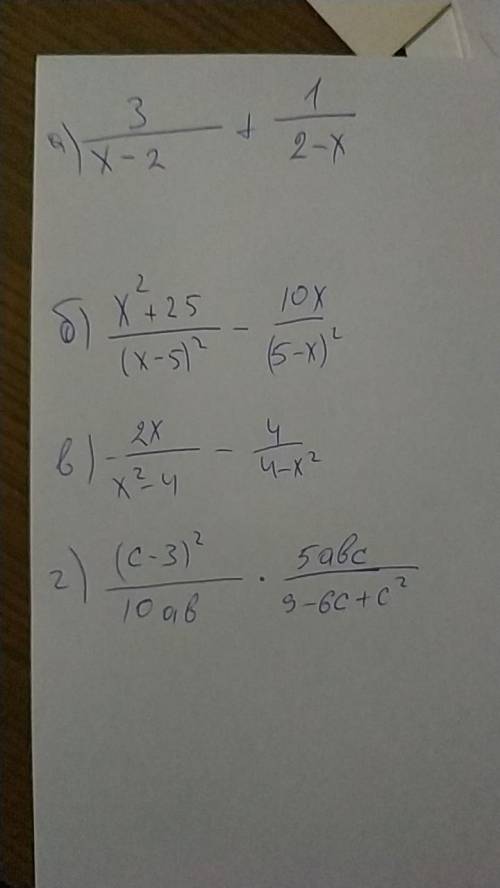 а) 3/(x-2) + 1/(2-x)
б) (x²+25)/(x-5)² - 10x/(5-x)²
в) -2x/(x²-4) - 4/(4-x²)
г) (c-3)²/10ab · 5abc/(9-6c+c²)